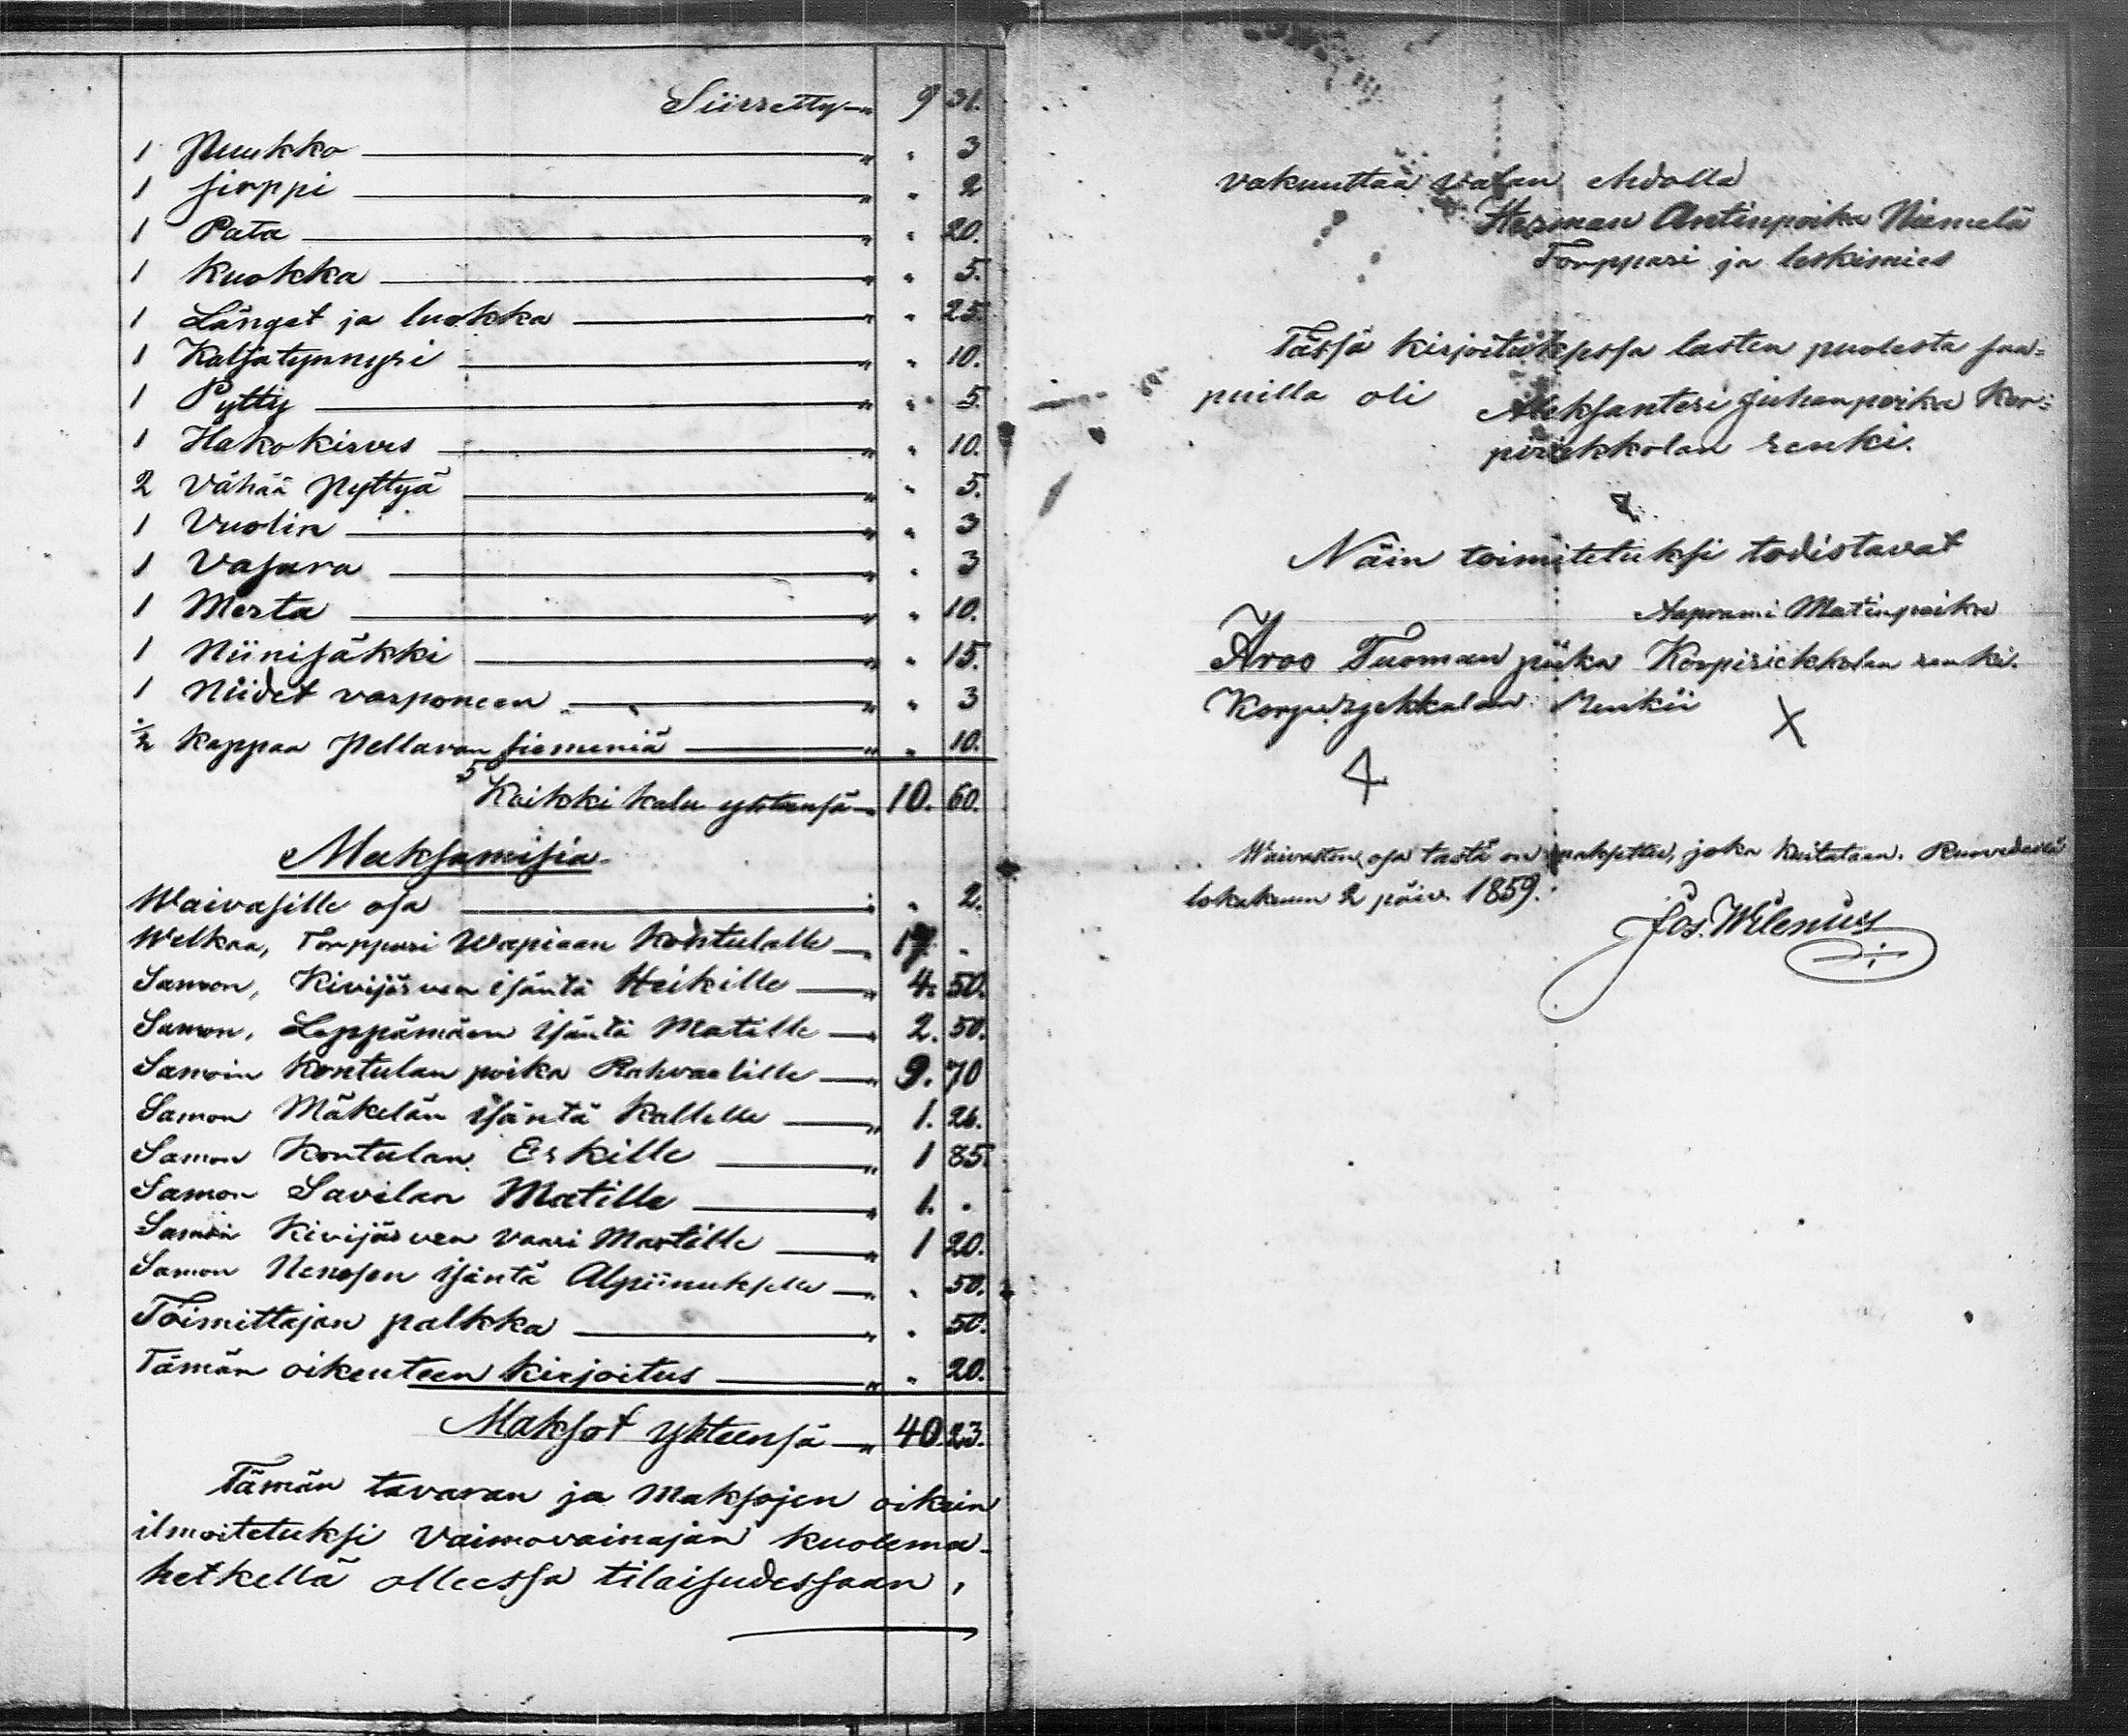 Siirretty — " 9 31.
1 Puukko — " " 3
1 Sirppi — " " 2
1 Pata — " " 20.
1 Kuokka — " " 5.
1 Länget ja luokka — " " 25.
1 Kaljatynnyri — " " 10.
1 Pytty — " " 5.
1 Hakokirves — " " 10.
2 Vähää Pyttyä — " " 5.
1 Vuolin — " " 3
1 Vasara — " " 3
1 Merta — " " 10.
1 Niinisäkki — " " 15.
1 Niidet varponeen — " " 3
½ Kappaa Pellavan siemeniä — " " 10.
Kaikki kalu yhteensä — " 10. 60.
Maksamisia
Waivasille osa — " " 2.
Welkaa, Torppari Wapiaan Kontulalle — " 17. "
Samon, Kivijärven isäntä Heikille — " 4. 50.
Samon, Leppämäen isäntä Matille — " 2. 50.
Samoin Kontulan poika Rahvaalille — " 9. 70
Samon Mäkelän isäntä Kallelle — " 1. 26.
Samon Kontulan Erkille — " 1 85.
Samon Savilan Matille — " 1. "
Samoin Kivijärven vaari Martille — " 1 20.
Samon Nenosen isäntä Alpiinukselle — " " 50.
Toimittajan palkka — " " 50.
Tämän oikeuteen kirjoitus — " " 20.
Maksot yhteensä — " 40. 23.
Tämän tavaran ja maksojen oikein
ilmoitetuksi vaimovainajan kuolema-
hetkellä olleessa tilaisudessaan,
vakuuttaa valan ehdolla
Herman Antinpoika Niemelä
Torppari ja leskimies
Tässä kirjoituksessa lasten puolesta saa=
puilla oli Aleksanteri Juhanpoika Kor=
piriekkolan renki.
Näin toimitetuksi todistavat
Aaprami Matinpoika
Aroo Tuoman poika Korpiriekkolan renki.
Korpirjekkalan Renkii X
Waivasten osa tästä on maksettu, joka kuitataan. Ruovedellä
lokakuun 2 päiv. 1859.
Jos. Wilenius